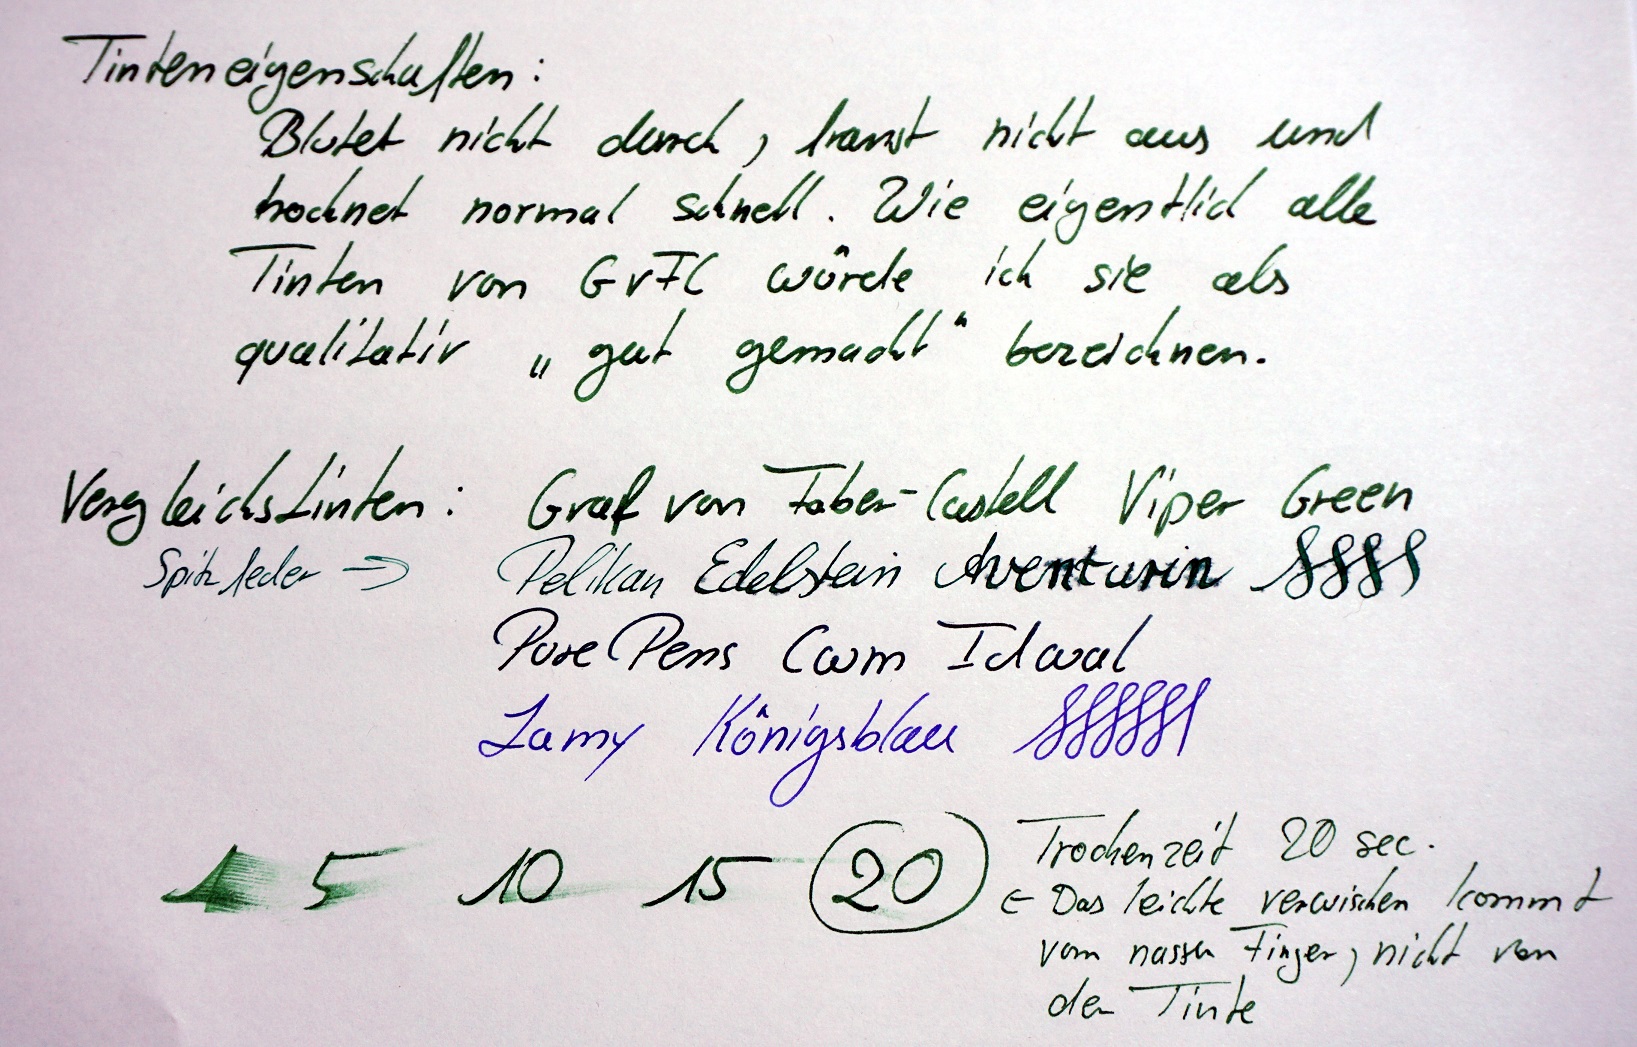 Tinteneigenschaften:
Blutet nicht durch, franst nicht aus und
trocknet normal schnell. Wie eigentlich alle
Tinten von GvFC würde ich sie als
qualitativ „gut gemacht“ bezeichnen.
Vergleichstinten: Graf von Faber-Castell Viper Green
Spitzfeder → Pelikan Edelstein Aventurin
Pure Pens Cwm Idwal
Lamy Königsblau
1 5 10 15 20
Trockenzeit 20 sec.
← Das leichte verwischen kommt
vom nassen Finger, nicht von
der Tinte